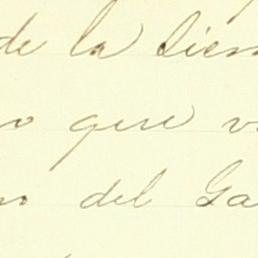 de la Siem
o que v
n del Ga